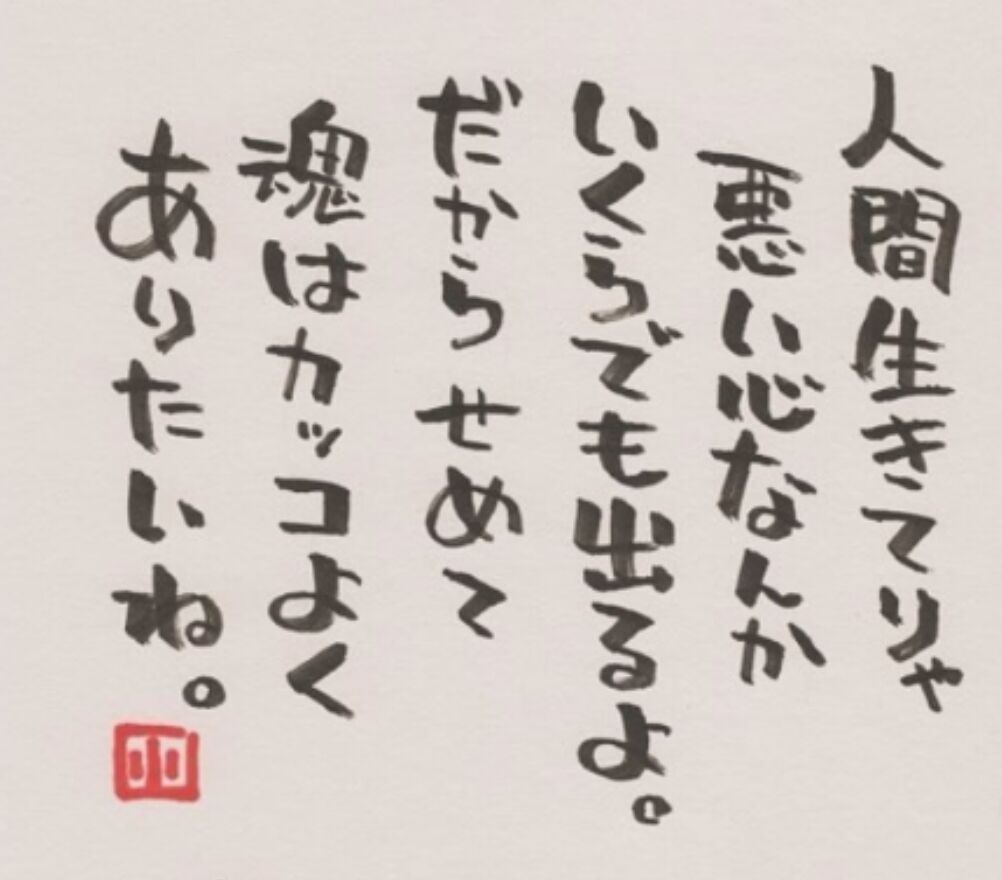 人間生きてりゃ
悪い心なんか
いくらでも出るよ。
だからせめて
魂はカッコよく
ありたいね。